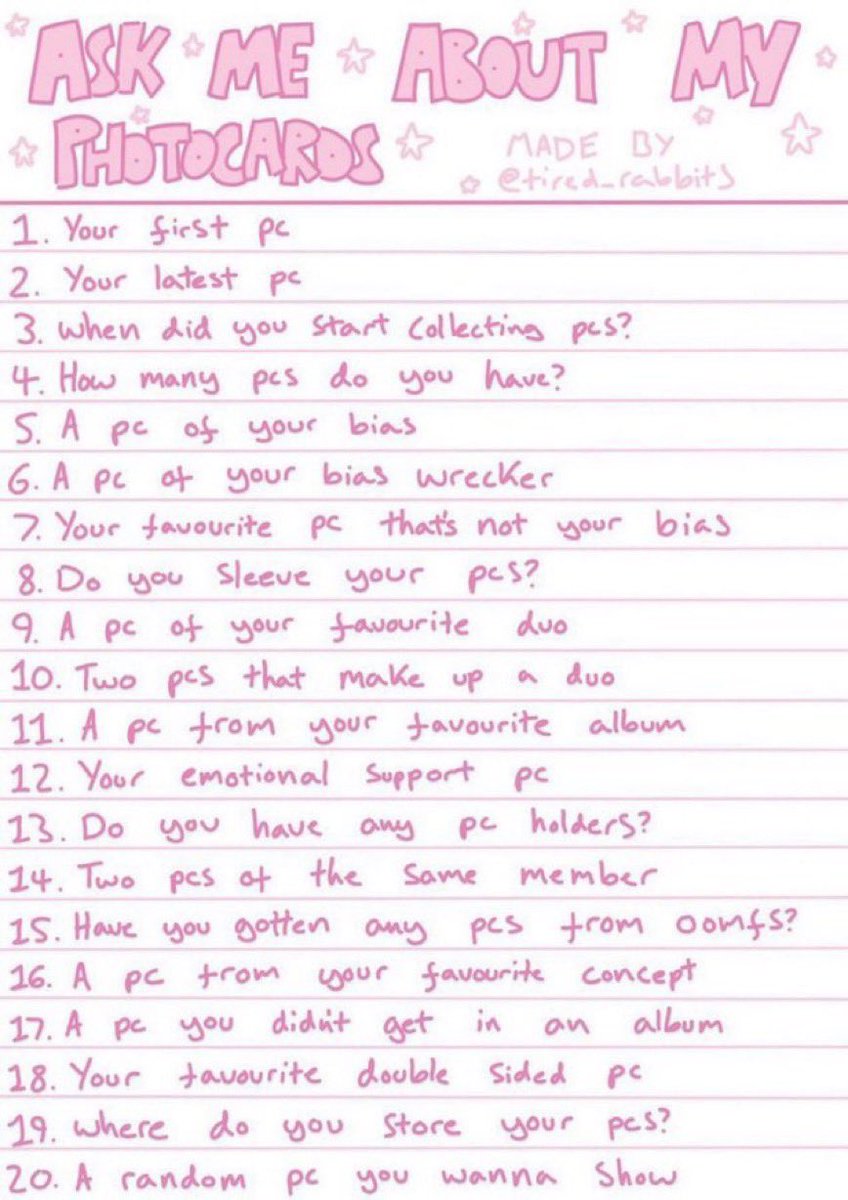 ASK ME ABOUT MY
PHOTOCARDS
MADE BY
@tired_rabbits
1. Your first pc
2. Your latest pc
3. When did you start collecting pcs?
4. How many pcs do you have?
5. A pc of your bias
6. A pc of your bias wrecker
7. Your favourite pc that's not your bias
8. Do you sleeve your pcs?
9. A pc of your favourite duo
10. Two pcs that make up a duo
11. A pc from your favourite album
12. Your emotional support pc
13. Do you have any pc holders?
14. Two pcs of the same member
15. Have you gotten any pcs from oomfs?
16. A pc from your favourite concept
17. A pc you didn't get in an album
18. Your favourite double sided pc
19. Where do you store your pcs?
20. A random pc you wanna show